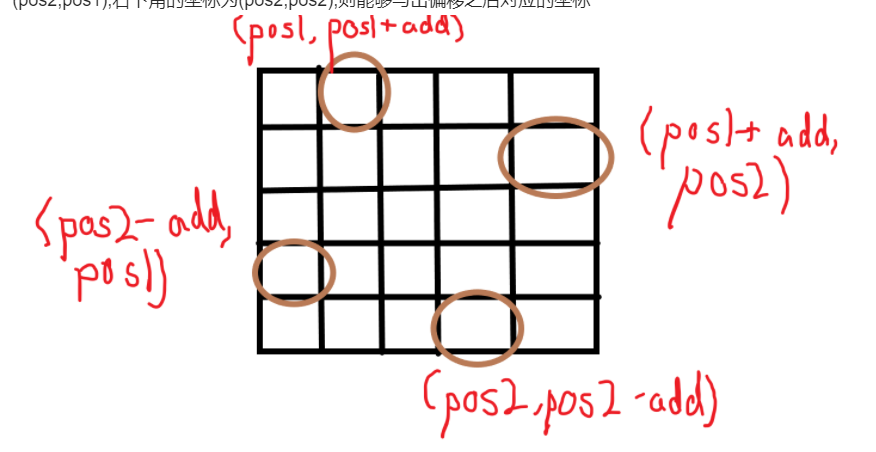 (pos2,pos1),右下角的坐标为(pos2,pos2),则能够写出偏移之后对应的坐标
(pos1, pos1+add)
(pos1+ add,
pos2)
(pos2- add,
pos1)
(pos2,pos2-add)